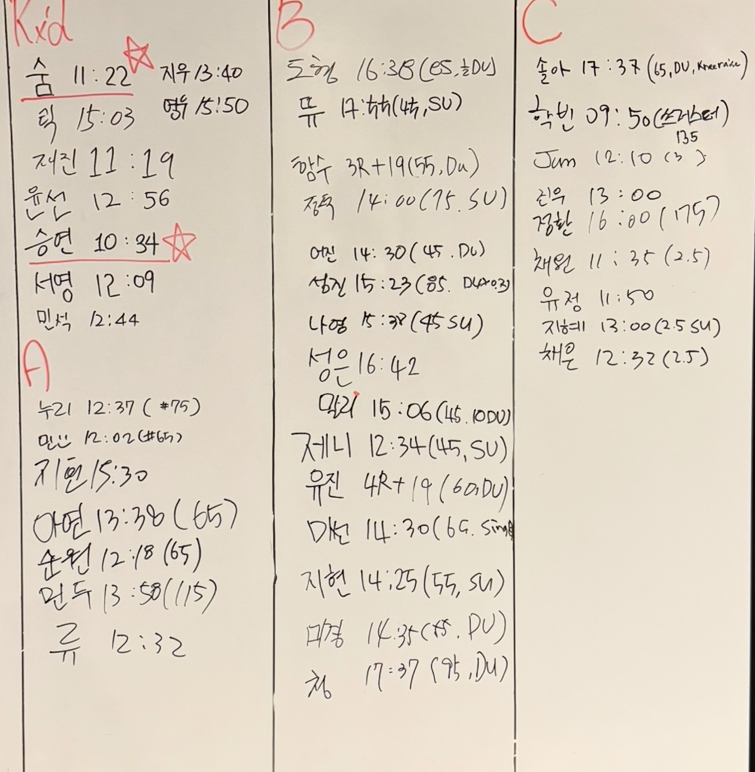 Rx'd
숨 11:22
지우 13:40
영두 15:50
틱 15:03
재진 11:19
윤선 12:56
승연 10:34
서영 12:09
민석 12:44
A
누리 12:37 (#75)
12:02 (#65)
지현 15:30
아연 13:38 (65)
순원 12:18 (65)
민두 13:58 (115)
류 12:32
B
도형 16:38 (85, ½DU)
뮤 (45, SU)
함수 3R+19 (55, DU)
14:00 (75. SU)
14:30 (45. DU)
성진 15:23 (85.
나영 15:38 (45 SU)
성은 16:42
막리 15:06 (45. 10DU)
제니 12:34 (45, SU)
유진 4R+19 (60, DU)
미선 14:30
지현 14:25 (55, SU)
미경 14:35 DU)
청 17:37 (95, DU)
C
솔아 17:37 (65, DU,
학빈 09:50 (쓰러스터)
135
Jun 12:10
13:00
정환 16:00 (175)
채원 11:35 (2.5)
유정 11:50
지혜 13:00 (2.5 SU)
채은 12:32 (2.5)